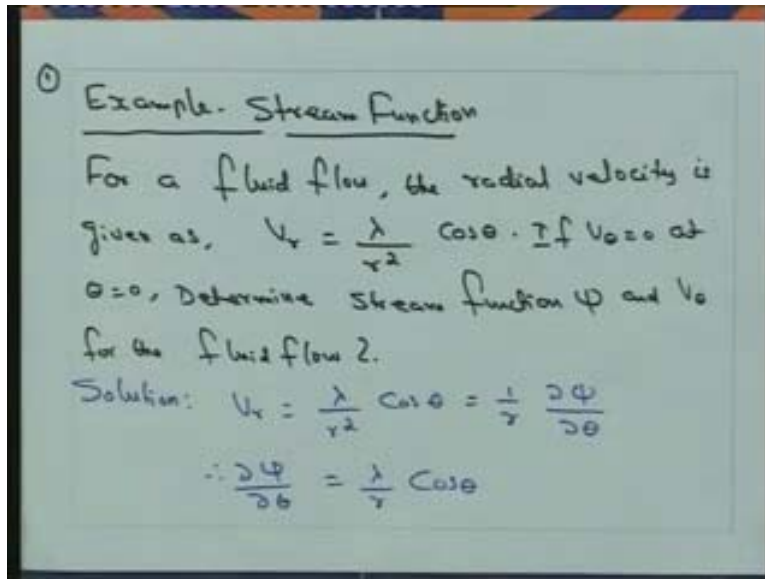 ①
Example - Stream Function
For a fluid flow, the radial velocity is
given as, Vᵣ = λ/r² Cosθ. If Vθ=0 at
θ=0, Determine Stream function ψ and Vθ
for the fluid flow ?.
Solution: Vᵣ = λ/r² Cosθ = 1/r ∂ψ/∂θ
∴ ∂ψ/∂θ = λ/r Cosθ